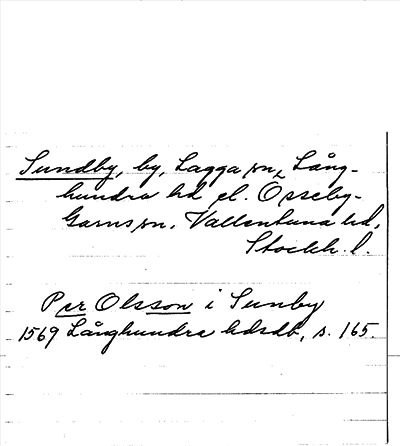 Sundby, by, Lagga sn, Lång-
hundra hd el. Össeby-
Garns sn, Vallentuna hd,
Stockh. l.
Per Olsson i Sunby
1569 Långhundra hdsdb, s. 165.